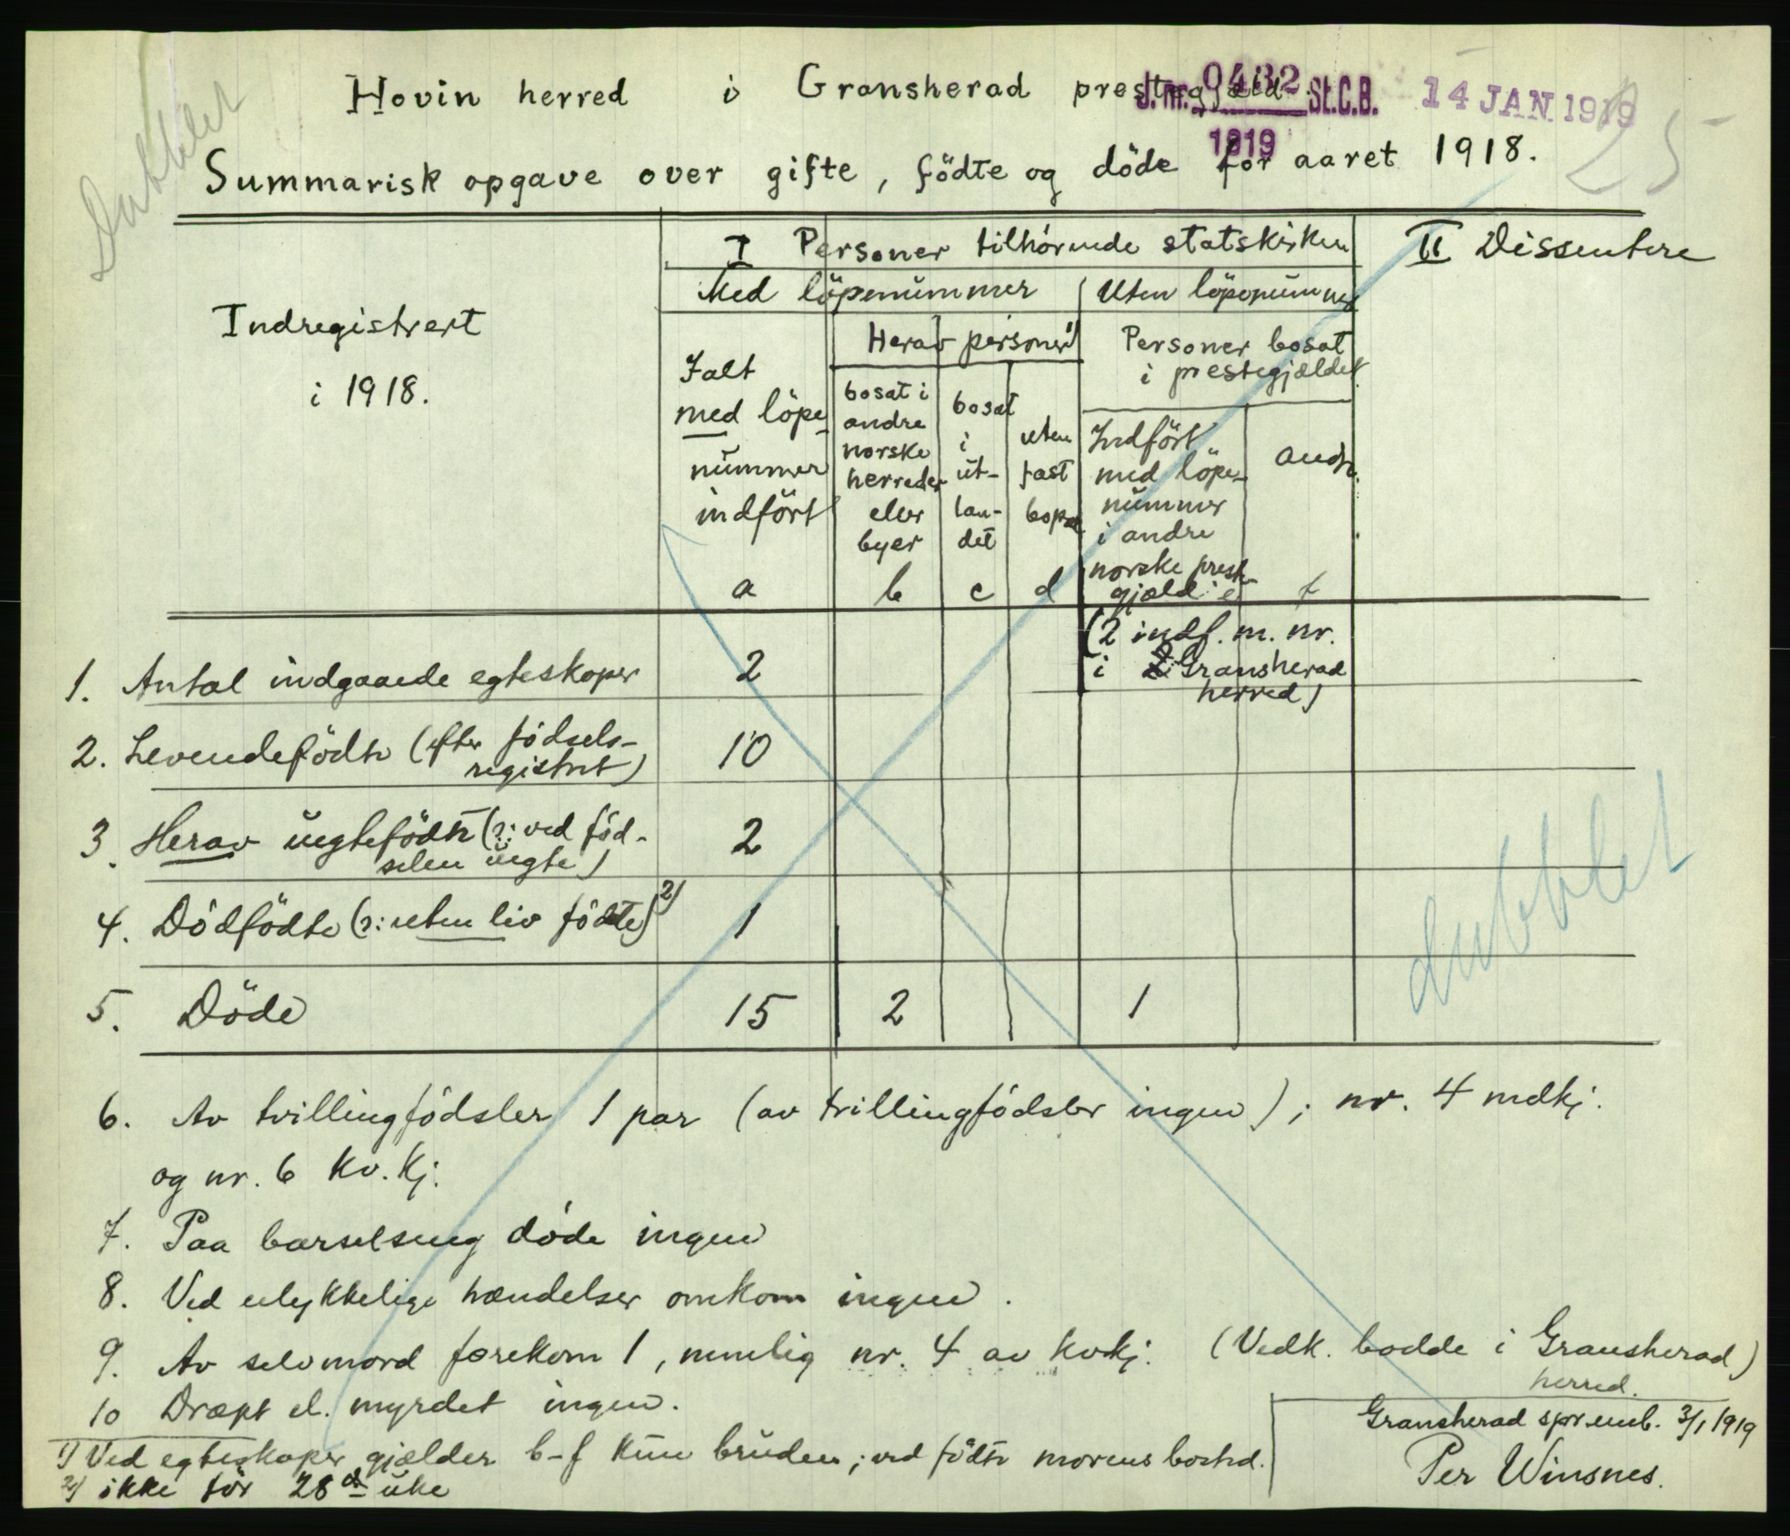 Dubblet
Hovin herred i Gransherad prestegjæld.
J. nr. 0432 St.C.B. 14 JAN 1919
1919
25
Summarisk opgave over gifte, födte og döde for aaret 1918.
Indregistrert
i 1918.
I Personer tilhörende statskirken
II Dissentere
Med löpenummer
Uten löpenummer
Herav personer 1)
Personer bosat
i prestegjældet
Ialt
med löpe-
nummer
indfört
a
bosat i
andre
norske
herreder
eller
byer
b
bosat
i
ut-
lan-
det
c
uten
fast
bopæl
d
Indfört
med löpe-
nummer
i andre
norske preste-
gjæld e
andre
f
1. Antal indgaaede egteskaper 2 (2 indf. m. nr.
i Gransherad
herred)
2. Levendefödte (efter födsels-
registret) 10
3. Herav uegtefödte (ɔ: ved föd-
selen uegte) 2
4. Dödfödte (ɔ: uten liv födte) 2) 1
5. Döde 15 2 1
dubblet
6. Av tvillingfödsler 1 par (av trillingfödsler ingen); nr. 4 mdkj.
og nr. 6 kv. kj.
7. Paa barselseng döde ingen
8. Ved ulykkelige hændelser omkom ingen.
9. Av selvmord forekom 1, nemlig nr. 4 av kvkj. (Vedk. bodde i Gransherad)
herred.
10 Dræpt el. myrdet ingen.
1) Ved egteskaper gjælder b-f kun bruden; ved födte morens bosted.
2) ikke før 28de uke
Gransherad spr.emb. 3/1 1919
Per Winsnes.